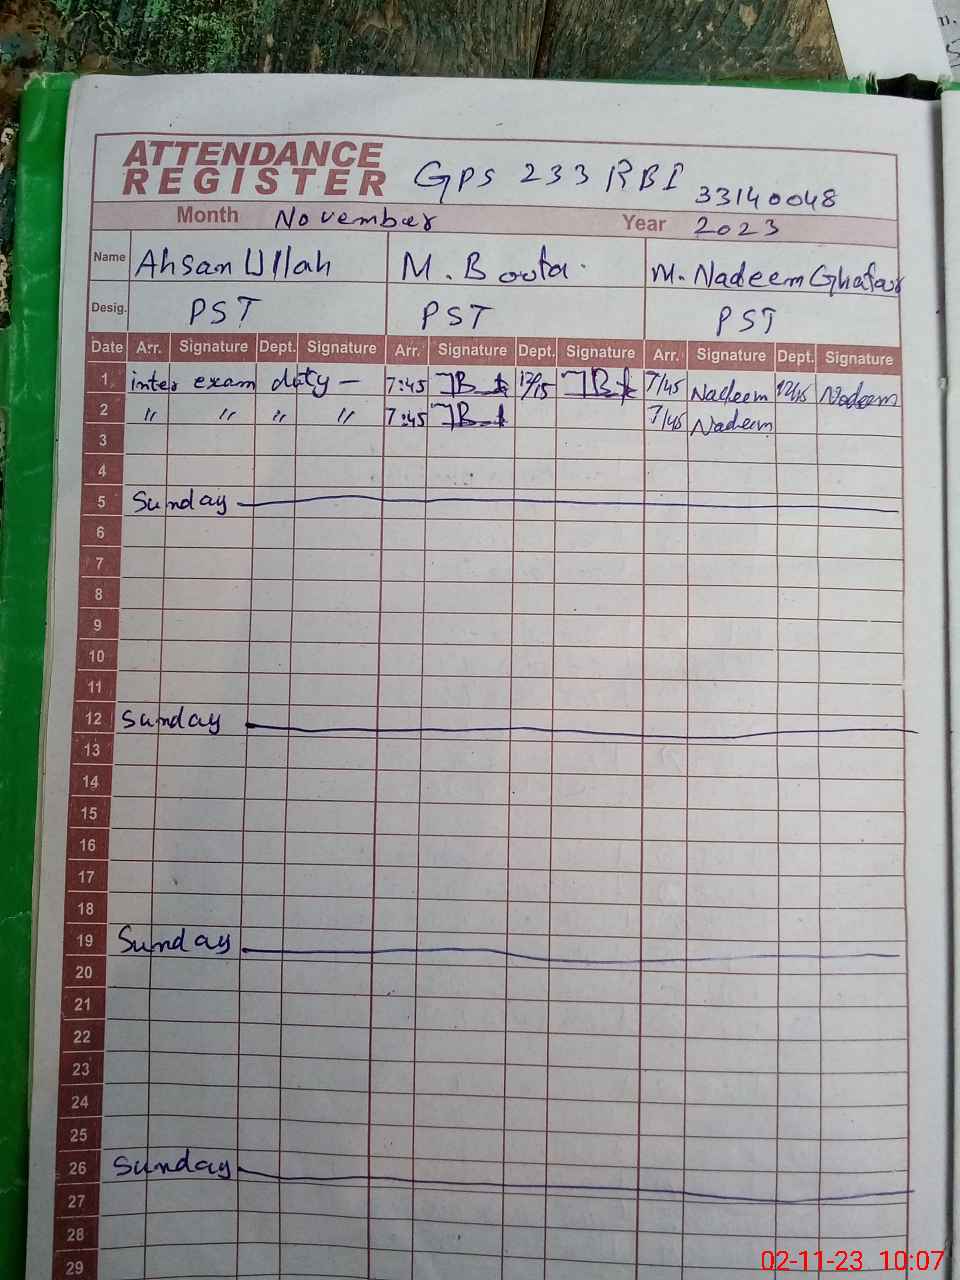 ATTENDANCE
REGISTER GPS 233 RBI 33140048
Month November Year 2023
Name Ahsan Ullah M. Boota. M. Nadeem Ghafar
Desig. PST PST PST
Date Arr. Signature Dept. Signature Arr. Signature Dept. Signature Arr. Signature Dept. Signature
1 inter exam duty — 7:45 12/15 7/45 Nadeem 12/15 Nadeem
2 〃 〃 〃 〃 7:45 7/45 Nadeem
3
4
5 Sunday
6
7
8
9
10
11
12 Sunday
13
14
15
16
17
18
19 Sunday
20
21
22
23
24
25
26 Sunday
27
28
29
02-11-23 10:07